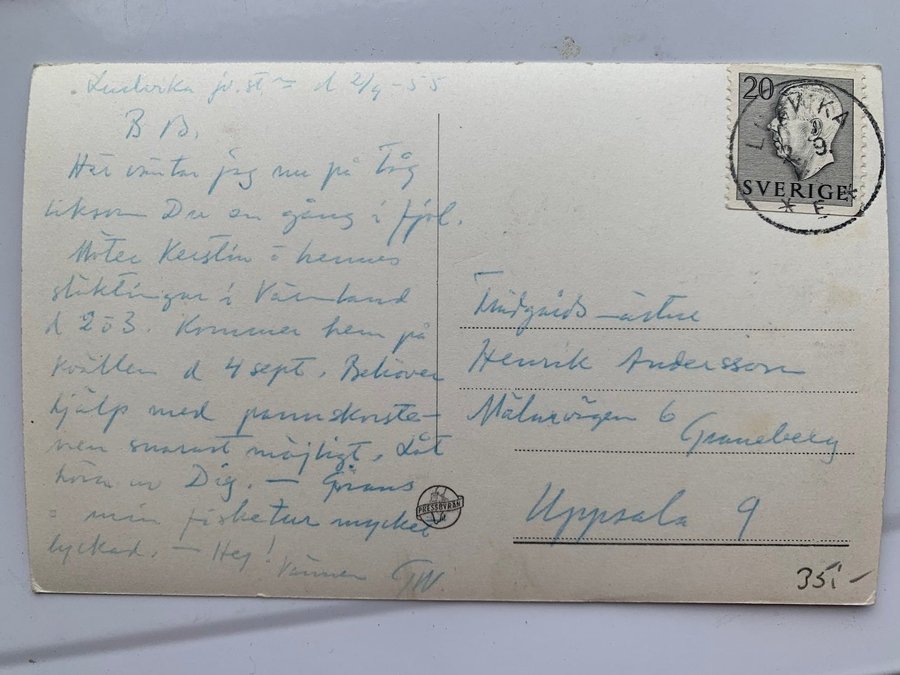 Ludvika jv. st. d 2/9-55
B B.
Här väntar jag nu på Tåg
liksom Du en gång i fjol.
Möter Kerstin o hennes
släktingar i Värmland
d 2 o 3. Kommer hem på
kvällen d 4 sept. Behöver
hjälp med pannskorste-
nen snarast möjligt. Låt
höra av Dig. — Görans
o min fisketur mycket
lyckad. — Hej!
Vännen GW
20
SVERIGE
Trädgårdsmästare
Henrik Andersson
Mälarvägen 6
Graneberg
Uppsala 9
PRESSBYRÅN
35:-